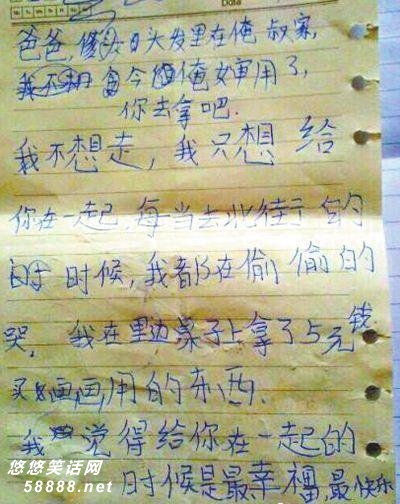 Date
爸爸，馒头日头发里在俺叔家，
我不 今 俺 用了，
你去拿吧.
我不想走，我只想给
你在一起，每当去北街 的
时候，我都在偷偷的
哭，我在里边桌子上拿了5元钱
买 画画用的东西.
我 觉得给你在一起的
时候是最幸福，最快乐
悠悠笑话网
58888.net